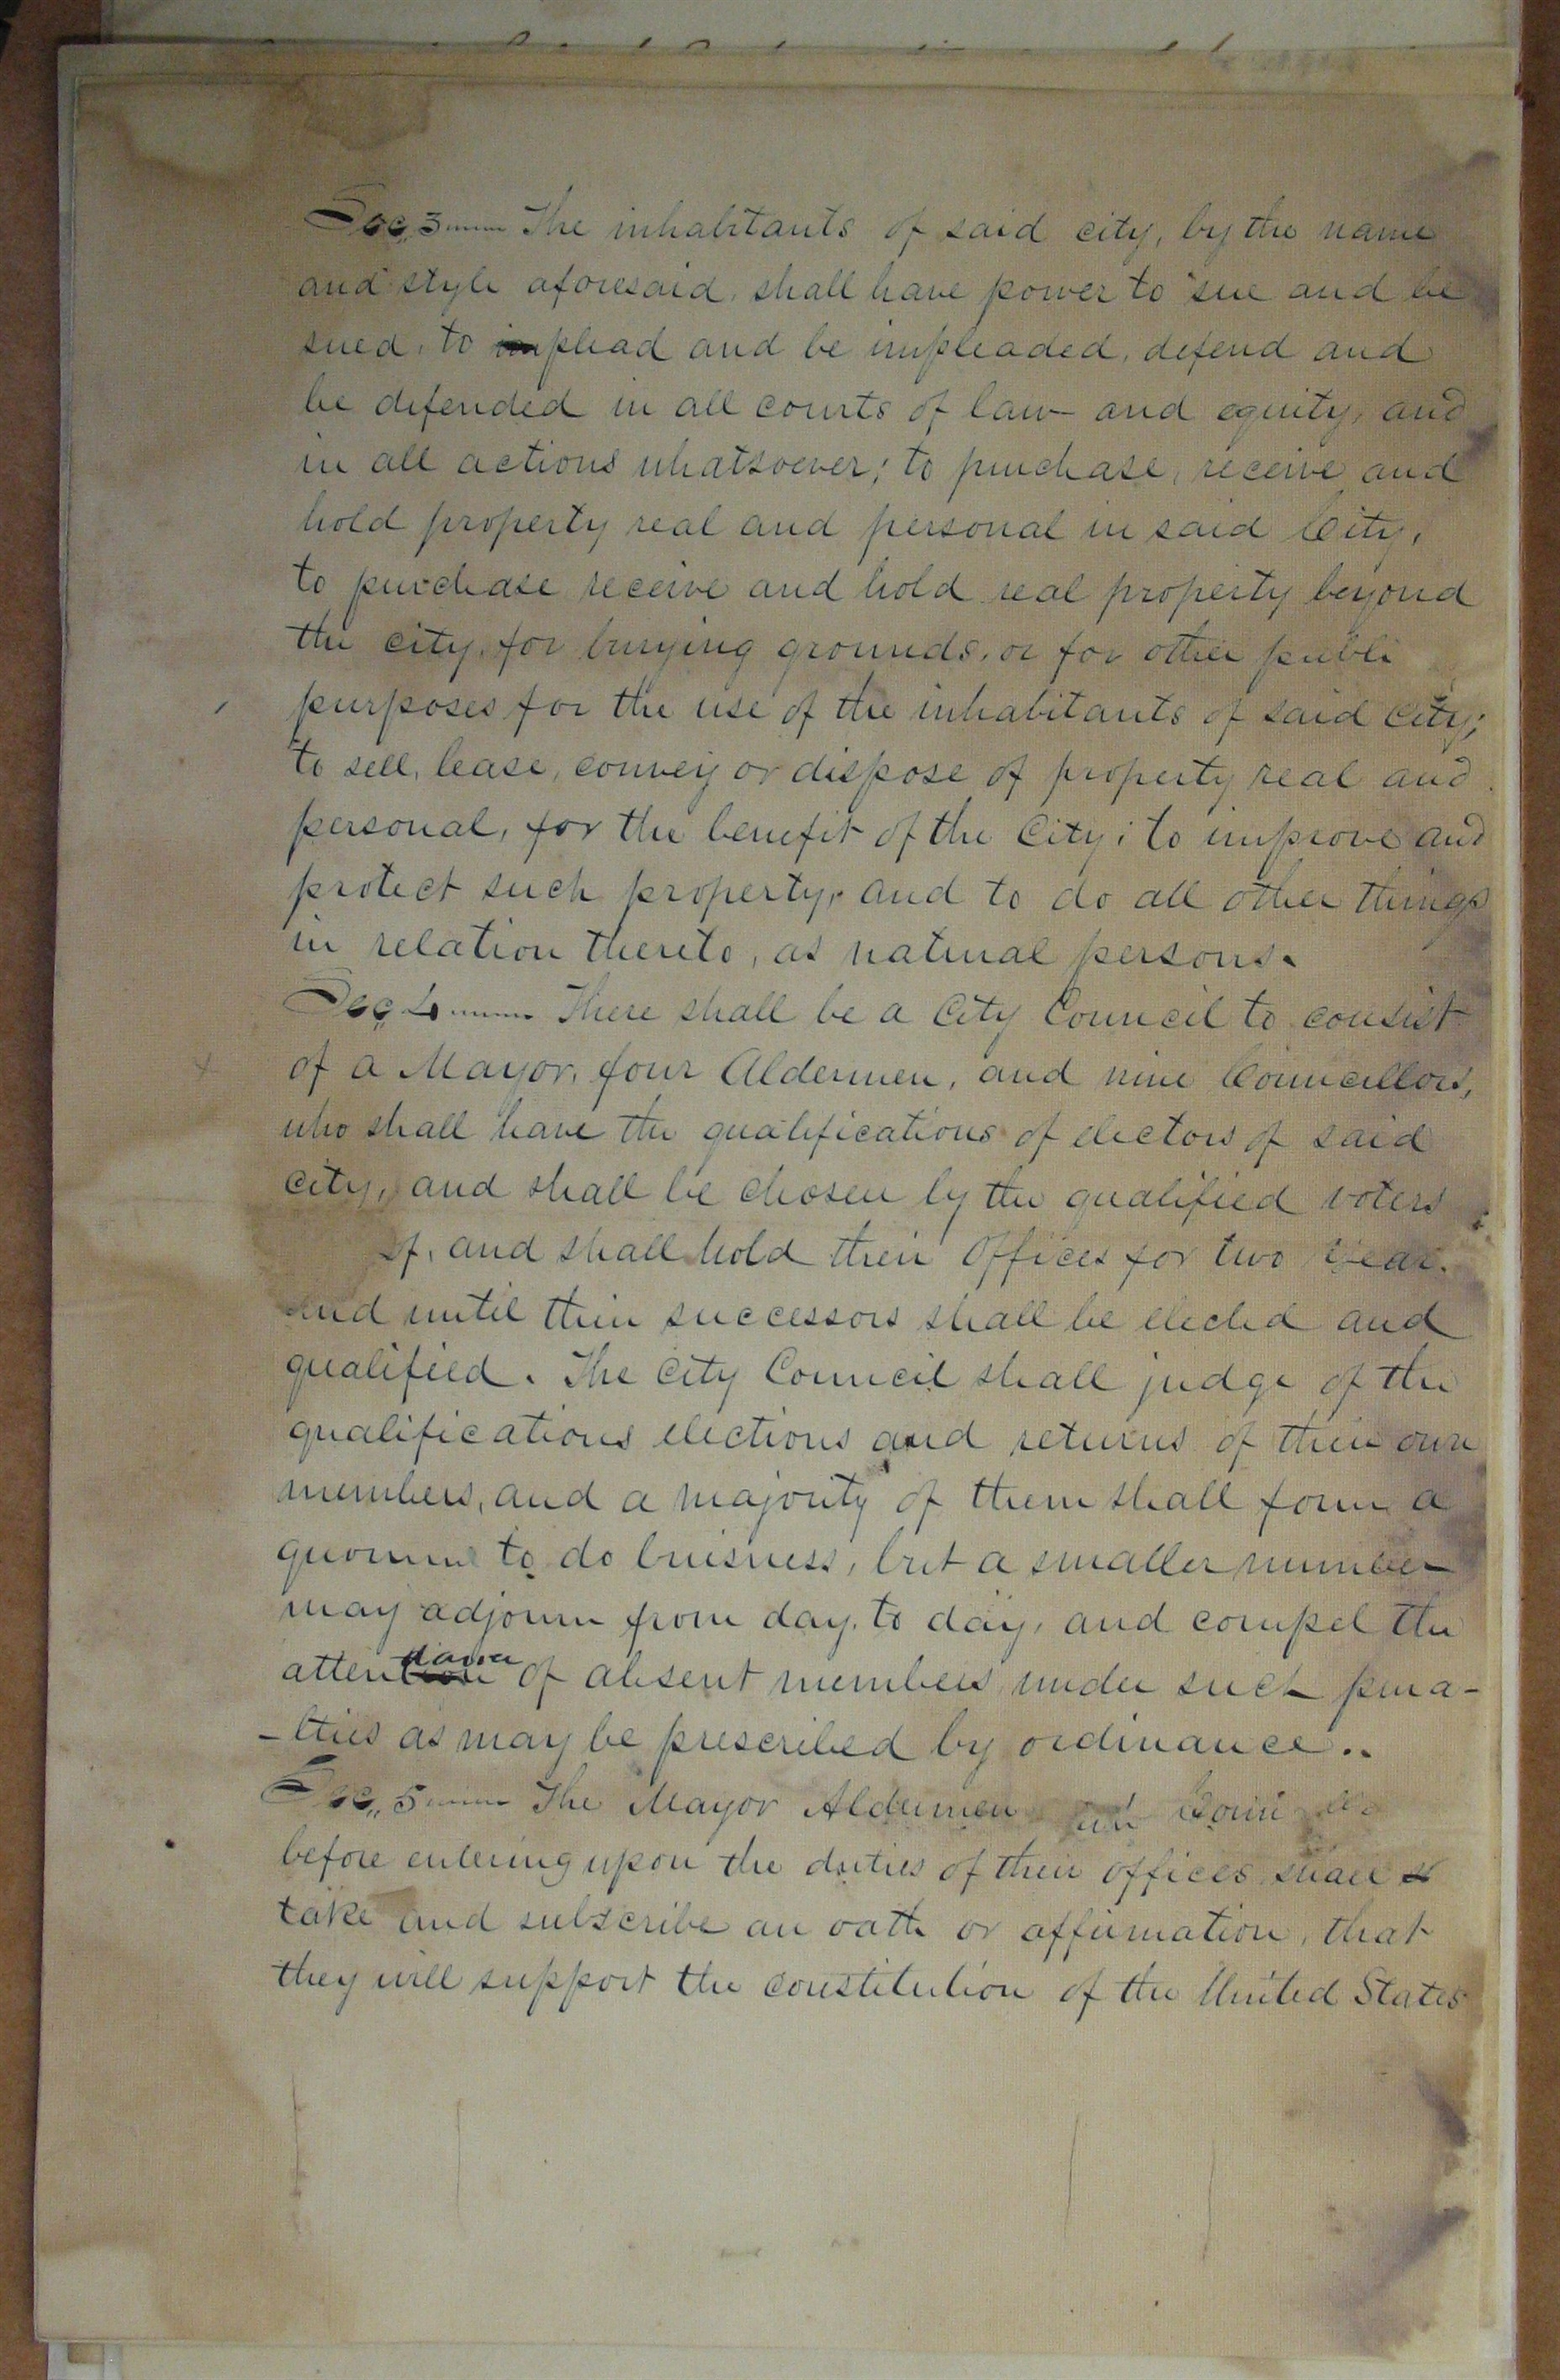 Sec, 3 The inhabitants of said city, by the name
and style aforesaid, shall have power to sue and be
sued, to plead and be impleaded, defend and
be defended in all courts of law and equity, and
in all actions whatsoever; to purchase, receive and
hold property real and personal in said City,
to purchase receive and hold real property beyond
the city, for burying grounds, or for other publi
purposes for the use of the inhabitants of said city;
to sell, lease, convey or dispose of property real and
personal, for the benefit of the City; to improve and
protect such property, and to do all other things
in relation thereto, as natural persons.
Sec, 4 There shall be a City Council to consist
of a Mayor, four Aldermen, and nine Councillors,
who shall have the qualifications of electors of said
city, and shall be chosen by the qualified voters
of, and shall hold their Offices for two year
and until their successors shall be elected and
qualified. The City Council shall judge of the
qualifications elections and returns of their own
members, and a majority of them shall form a
quorum to do buisness, but a smaller number
may adjourn from day, to day, and compel the
attendance of absent members under such pena-
-lties as may be prescribed by ordinance..
Sec,, 5 The Mayor Aldermen and
before entering upon the duties of their offices shall
take and subscribe an oath or affirmation, that
they will support the constitution of the United States